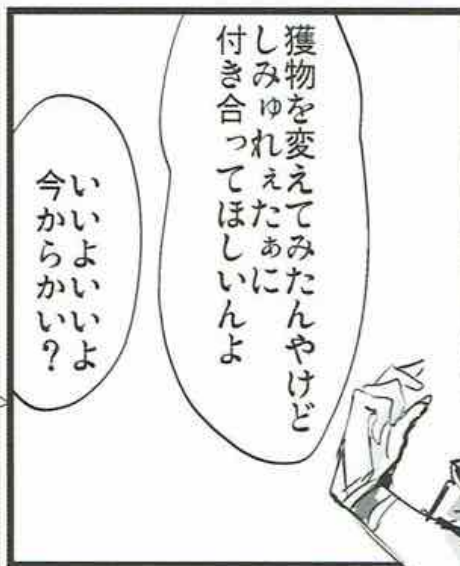 獲物を変えてみたんやけど
しみゅれぇたぁに
付き合ってほしいんよ
いいよいいよ
今からかい?